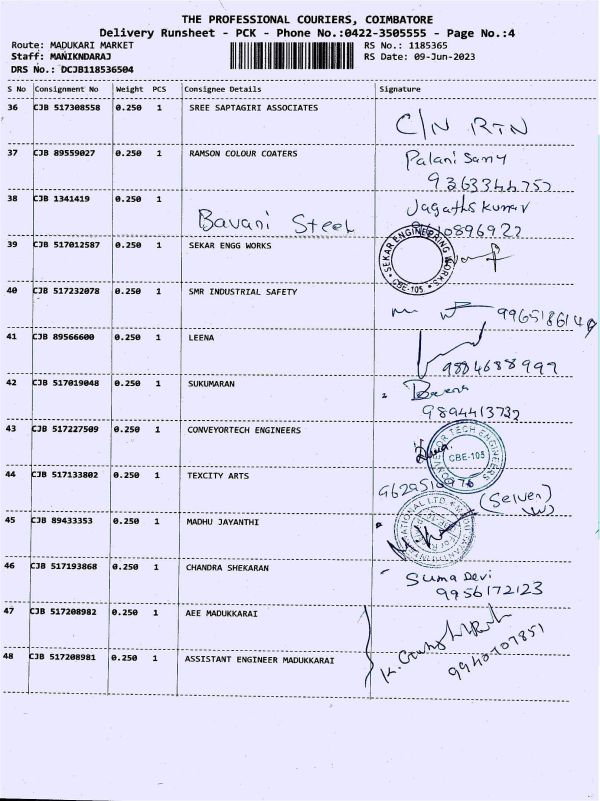 THE PROFESSIONAL COURIERS, COIMBATORE
Delivery Runsheet - PCK - Phone No.:0422-3505555 - Page No.:4
Route: MADUKARI MARKET RS No.: 1185365
Staff: MANIKNDARAJ RS Date: 09-Jun-2023
DRS No.: DCJB118536504
S No Consignment No Weight PCS Consignee Details Signature
36 CJB 517308558 0.250 1 SREE SAPTAGIRI ASSOCIATES
C/N RTN
37 CJB 89559027 0.250 1 RAMSON COLOUR COATERS Palani Samy
9363344757
38 CJB 1341419 0.250 1 Jagathskumar
Bavani Steel
39 CJB 517012587 0.250 1 SEKAR ENGG WORKS
SEKAR ENGINEERING WORKS CBE-105
40 CJB 517232078 0.250 1 SMR INDUSTRIAL SAFETY
41 CJB 89566600 0.250 1 LEENA
9884688997
42 CJB 517019048 0.250 1 SUKUMARAN
9894413732
43 CJB 517227509 0.250 1 CONVEYORTECH ENGINEERS
CONVEYOR TECH ENGINEERS CBE-105
44 CJB 517133802 0.250 1 TEXCITY ARTS
(Selven)
45 CJB 89433353 0.250 1 MADHU JAYANTHI
46 CJB 517193868 0.250 1 CHANDRA SHEKARAN
Suma Devi
9956172123
47 CJB 517208982 0.250 1 AEE MADUKKARAI
48 CJB 517208981 0.250 1 ASSISTANT ENGINEER MADUKKARAI
9940707851